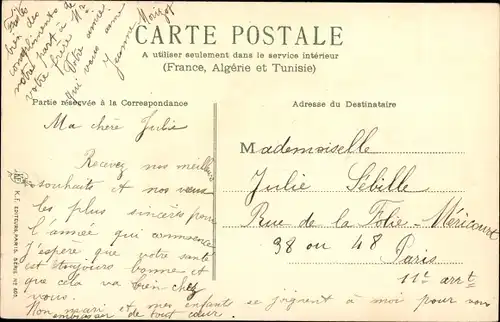 CARTE POSTALE
A utiliser seulement dans le service intérieur
(France, Algérie et Tunisie)
Partie réservée à la Correspondance
Adresse du Destinataire
Ma chère Julie
Recevez nos meilleurs
souhaits et nos vœux
les plus sincères pour
l'année qui commence
J'espère que votre santé
est toujours bonne et
que cela va bien chez
vous.
Mon mari et mes enfants se joignent à moi pour vous
embrasser de tout cœur.
Mademoiselle
Julie Sébille
Rue de la Folie-Méricourt
38 ou 48
Paris
11e arrt
bien des
compliments de
notre part à Mr
votre frère
Votre amie
qui vous aime
Jeanne
K.F. EDITEURS, PARIS. SÉRIE